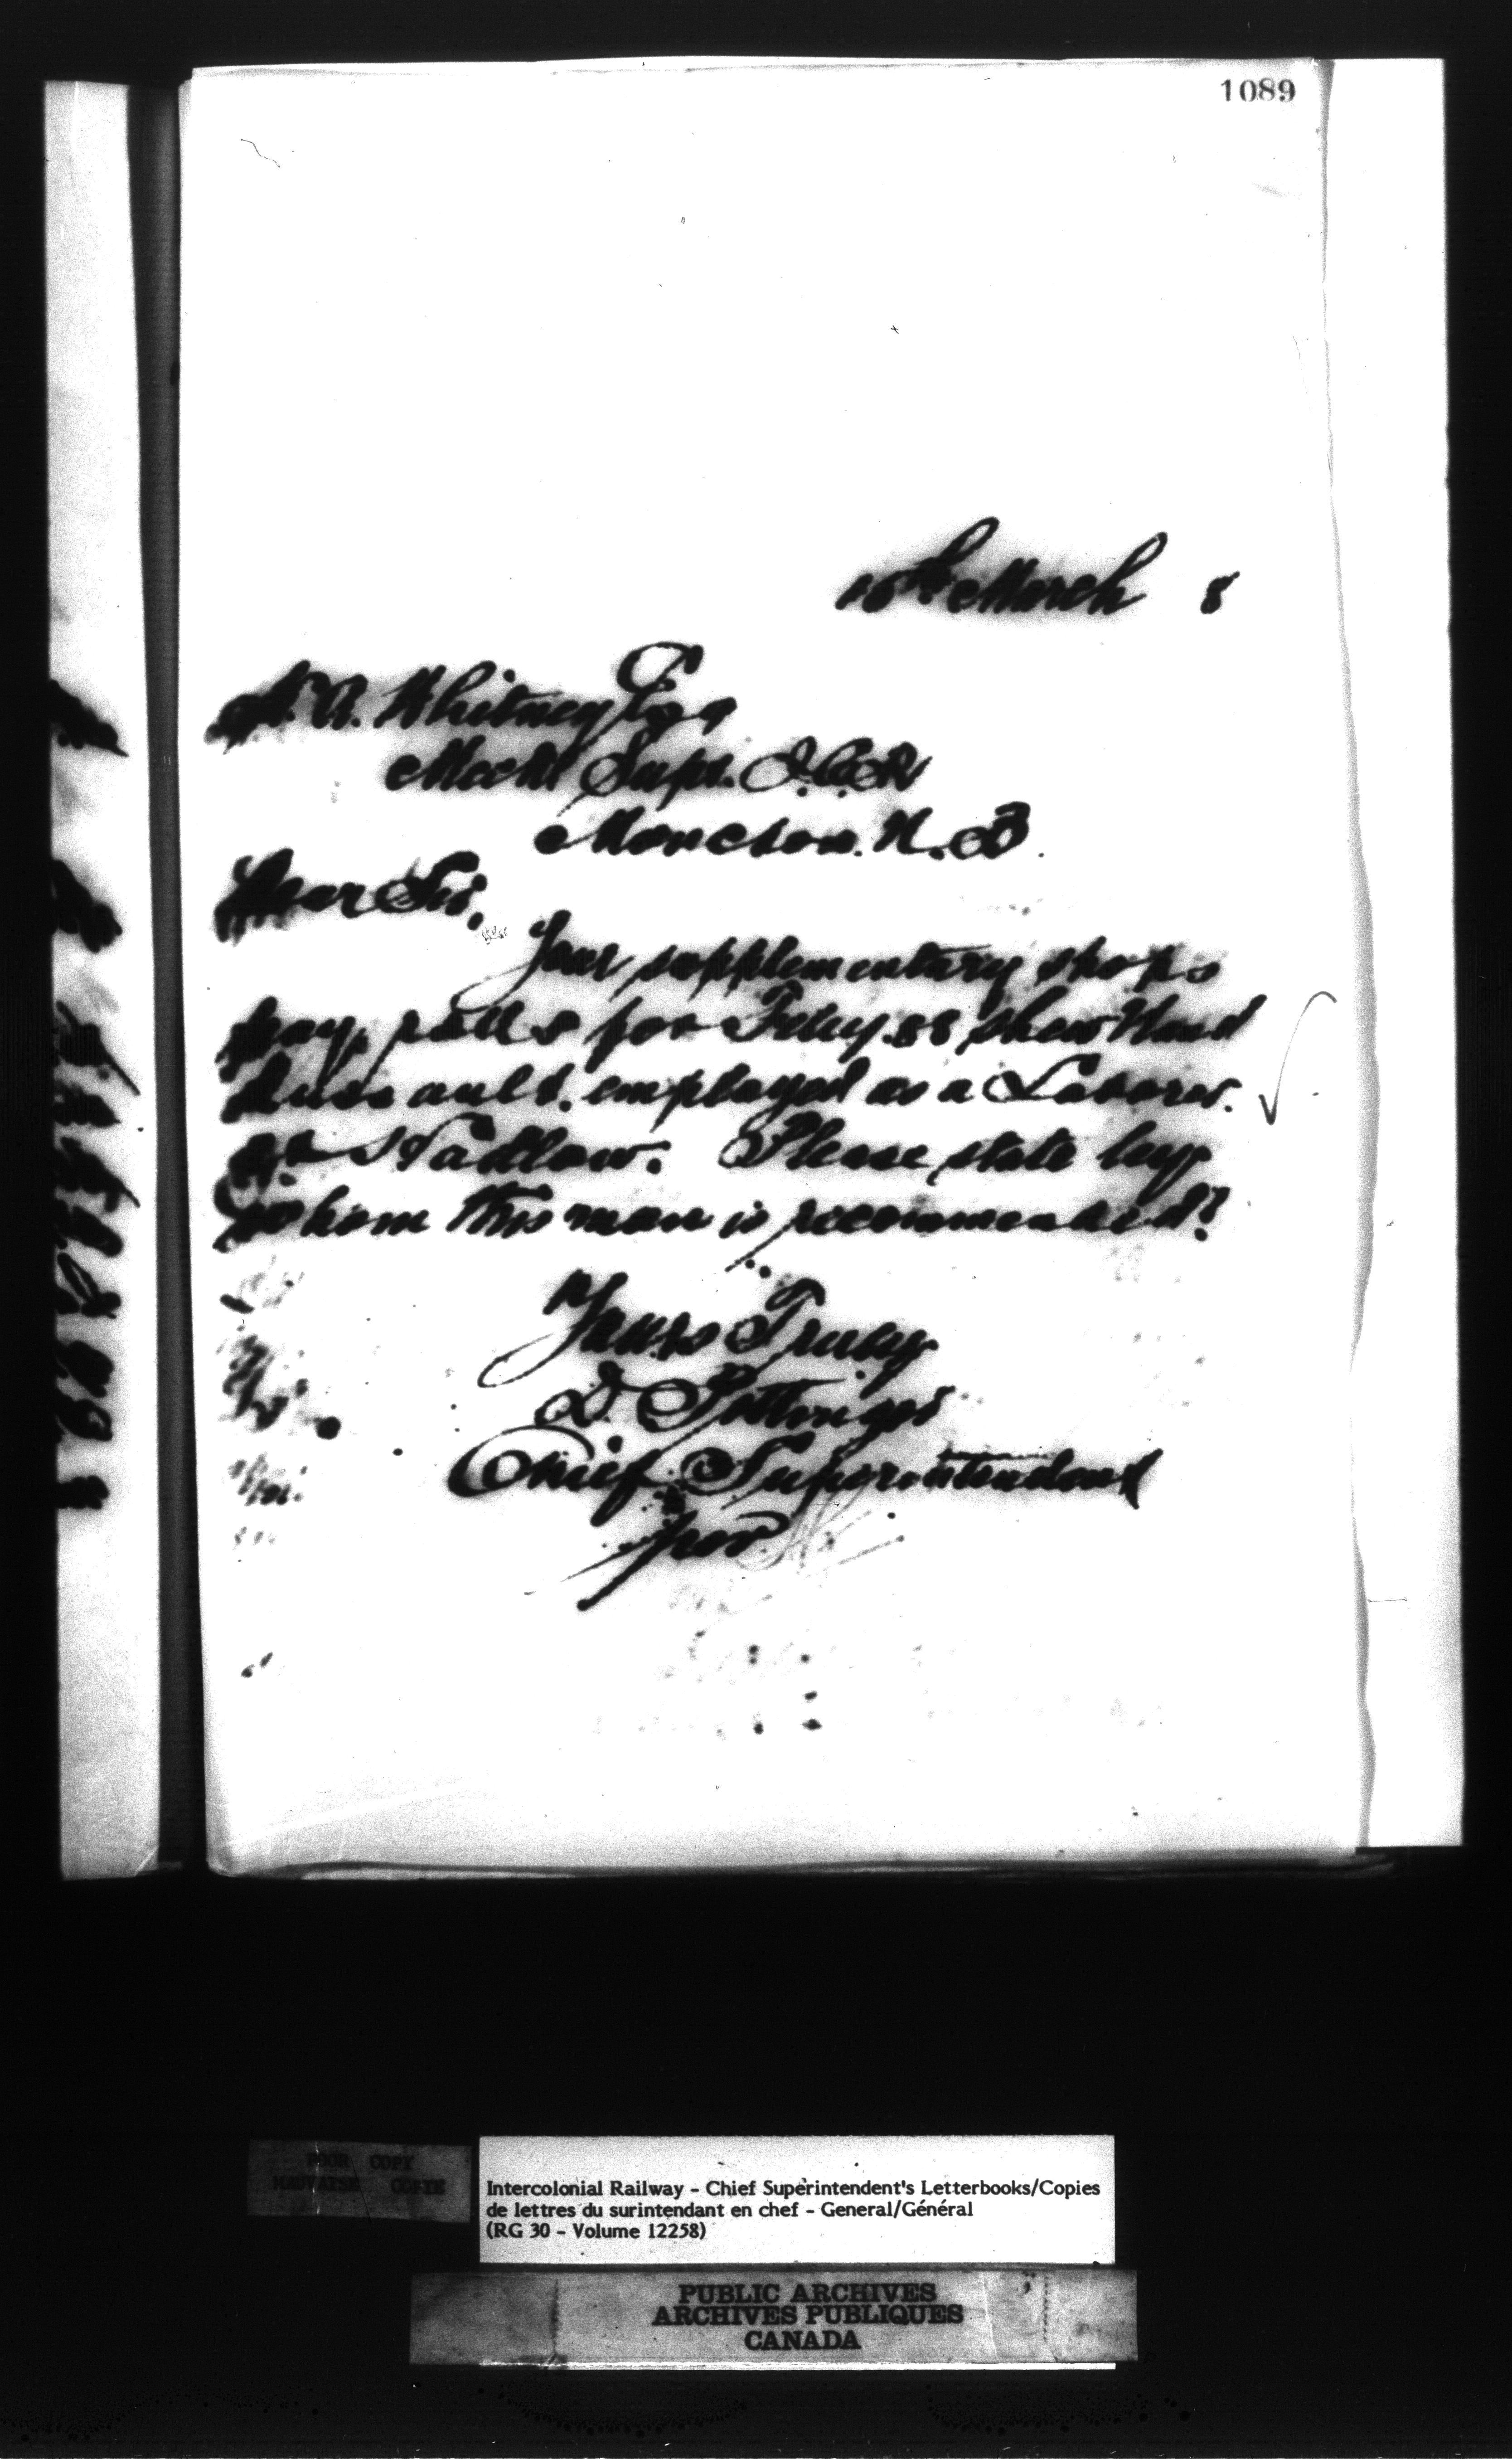 1089
March 8
H. A. Whitney Esq
Mechl Supt. I.C.R
Moncton. N.B.
Dear Sir,
Your supplementary shops
pay rolls for Feby. 88 shew
employed as a Laborer.
at St Fadlow. Please state by
whom this man is recommended?
Yours Truly
D. Pottinger
Chief Superintendent
per
POOR COPY
MAUVAISE COPIE
Intercolonial Railway - Chief Superintendent's Letterbooks/Copies
de lettres du surintendant en chef - General/Général
(RG 30 - Volume 12258)
PUBLIC ARCHIVES
ARCHIVES PUBLIQUES
CANADA